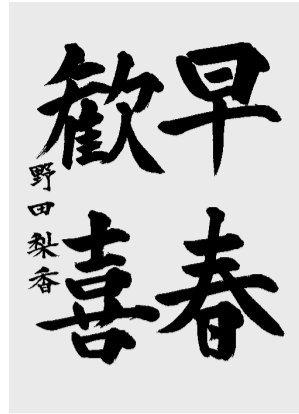 早春
歓喜
野田梨香